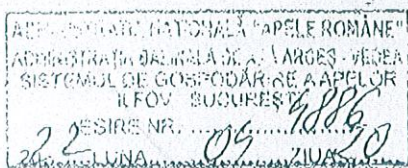 NAȚIONALĂ "APELE ROMÂNE"
ADMINISTRAȚIA BAZINALĂ DE APĂ ARGEȘ - VEDEA
SISTEMUL DE GOSPODĂRIRE A APELOR
ILFOV BUCUREȘTI
IEȘIRE NR. ..... 4886
LUNA 05 ZIUA 20